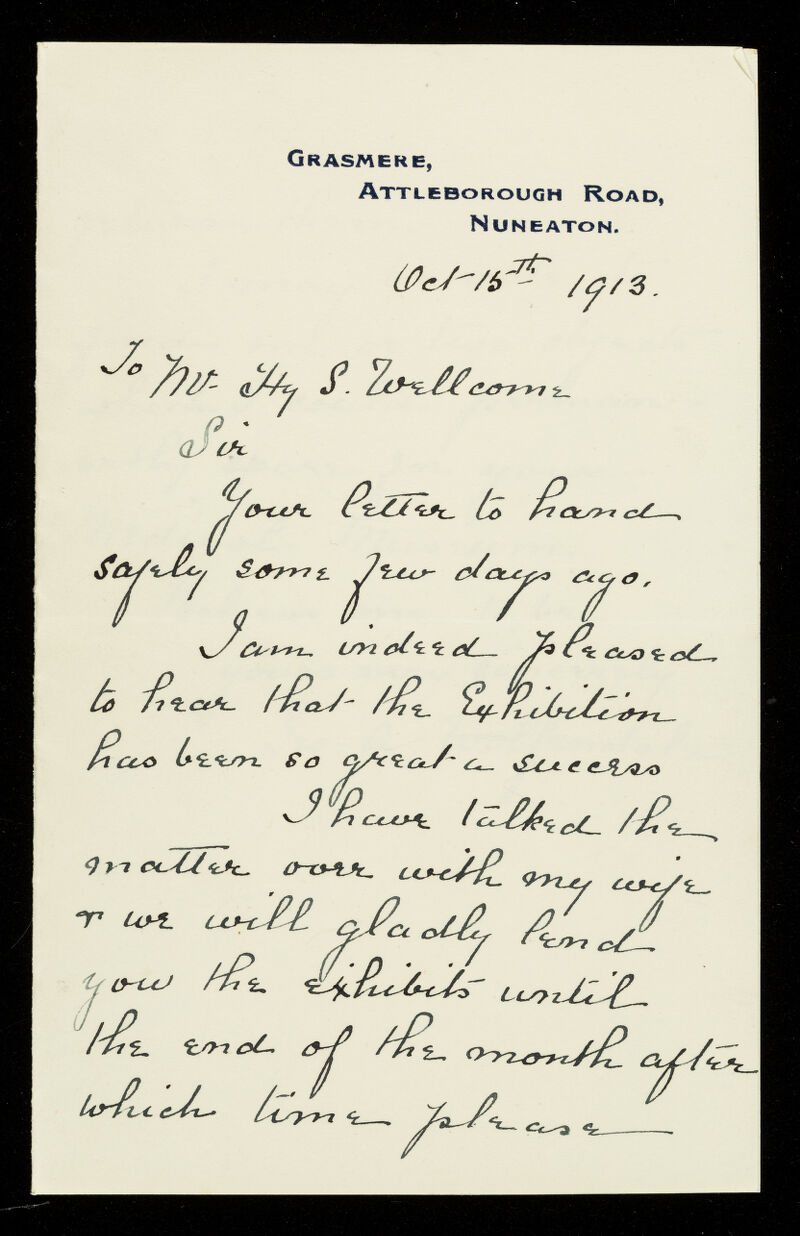 GRASMERE,
ATTLEBOROUGH ROAD,
NUNEATON.
Oct 15th 1913.
To Mr. Hy S. Wellcome
Sir
Your letter to hand
safely some few days ago.
I am indeed pleased
to hear that the Exhibition
has been so great a success
I have talked the
matter over with my wife
& we will gladly lend
you the exhibits until
the end of the month after
which time please